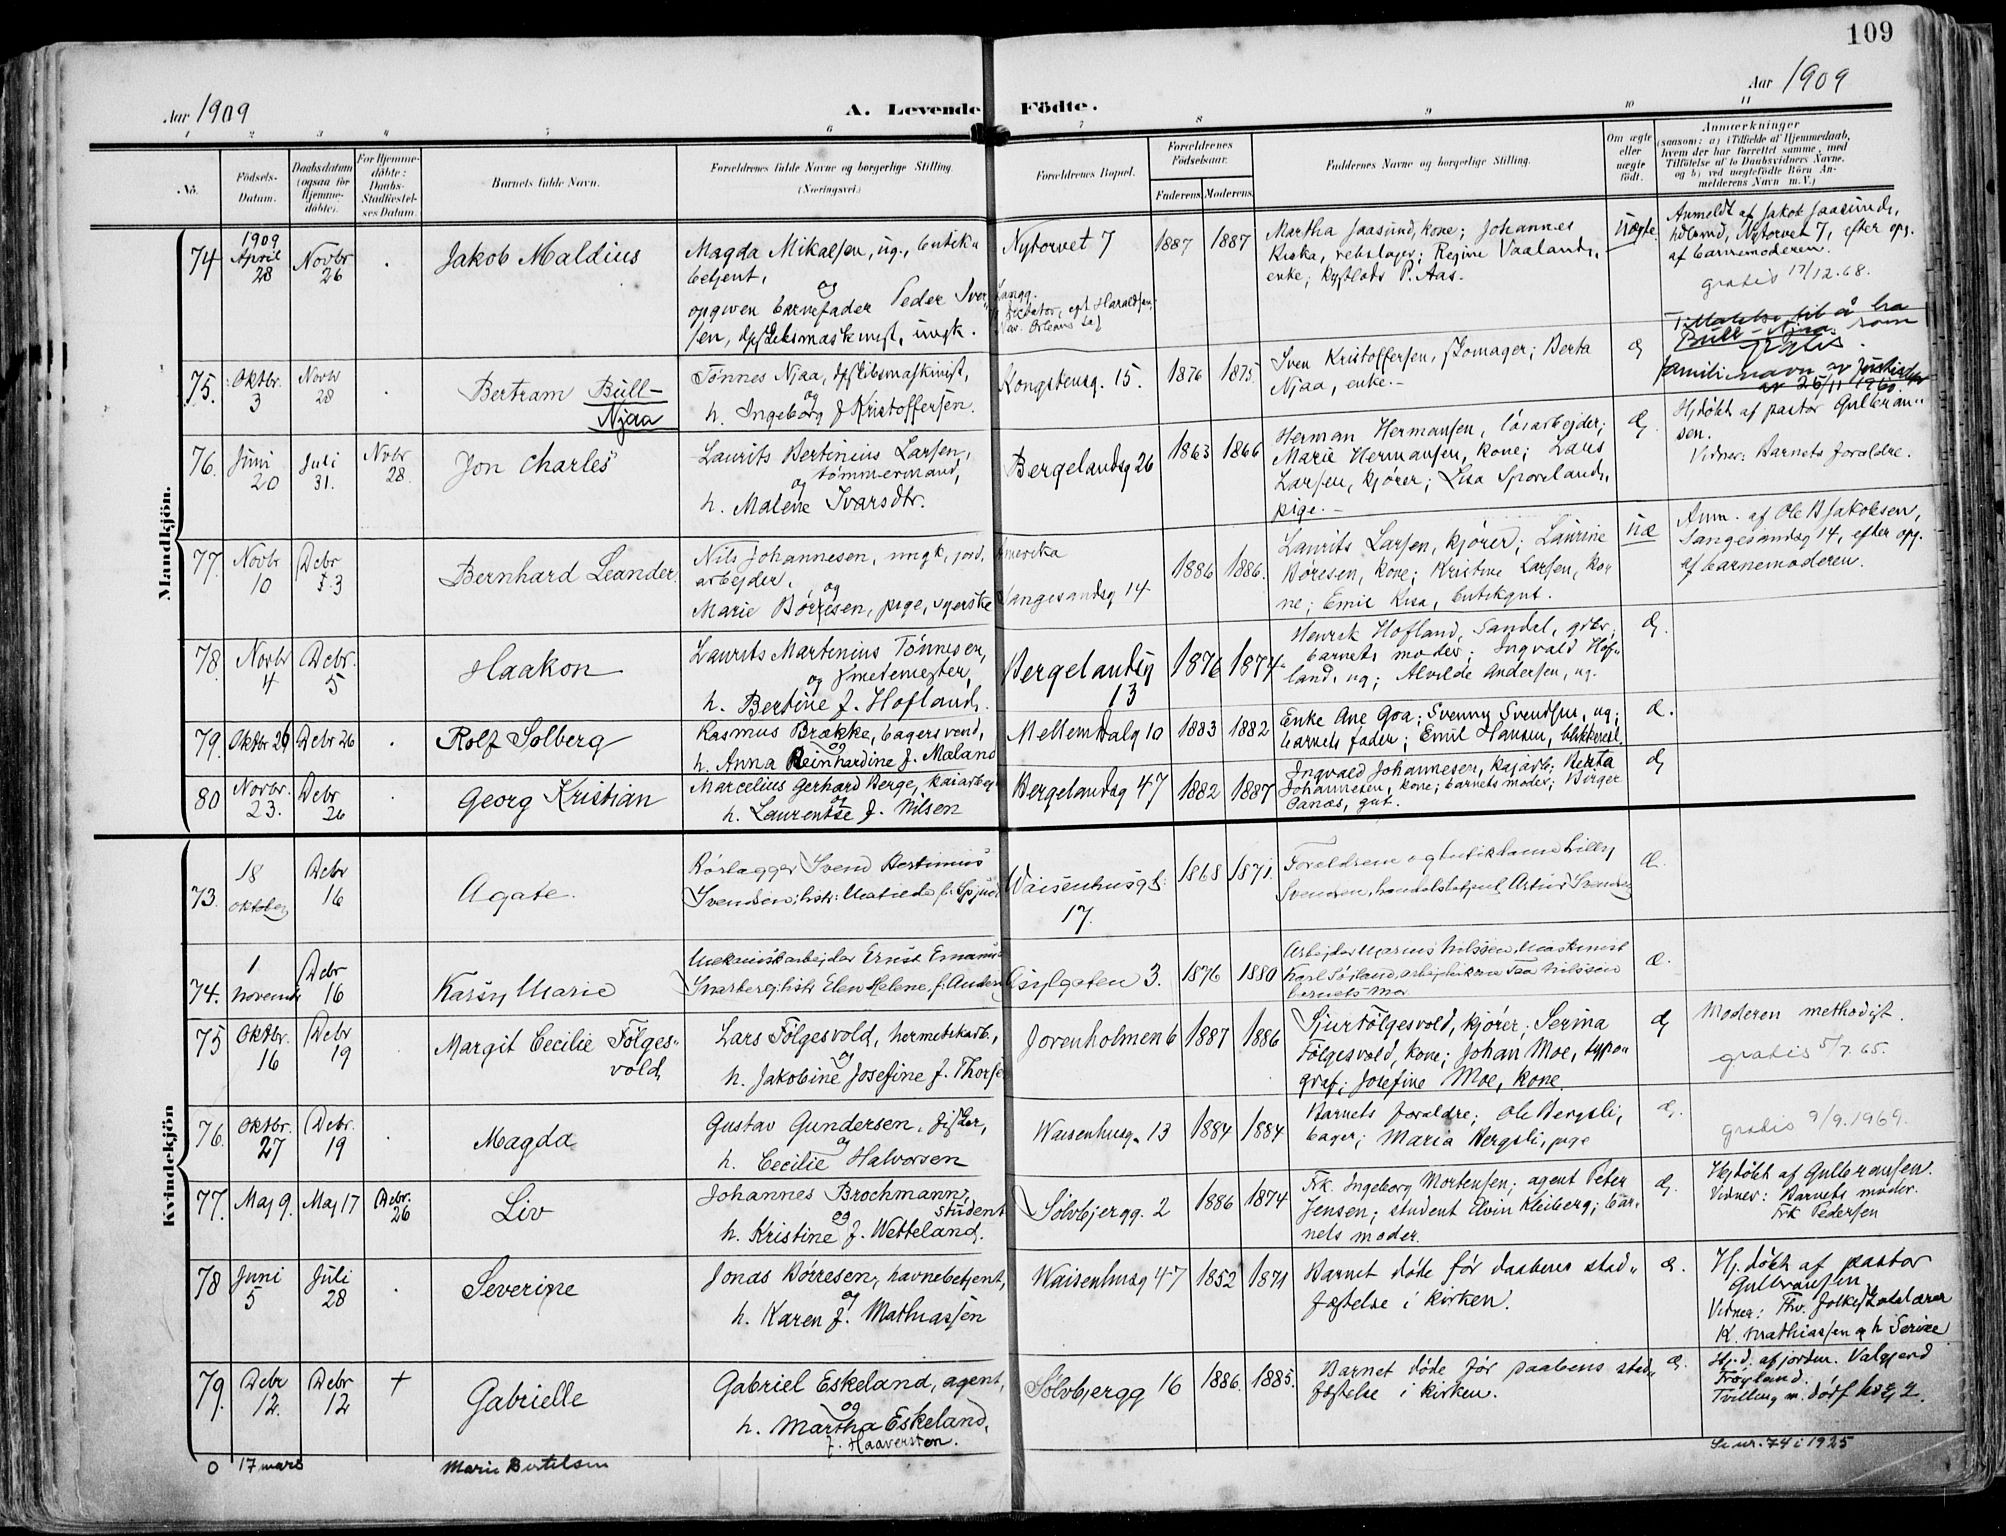 109
Aar 1909
A. Levende Födte.
Aar 1909
1 2 3 4 5 6 7 8 9 10 11
No.
Födsels-Datum.
Daabsdatum (ogsaa for Hjemme-döbte).
For Hjemme-döbte: Daabs-Stadfæstel-ses Datum.
Barnets fulde Navn.
Forældrenes fulde Navne og borgerlige Stilling. (Næringsvei.)
Forældrenes Bopæl.
Forældrenes Födselsaar.
Faderens. Moderens.
Faddernes Navne og borgerlige Stilling.
Om ægte eller uægte födt.
Anmærkninger
(saasom: a) i Tilfælde af Hjemmedaab, hvem der har forrettet samme, med Tilföielse af to Daabsvidners Navne, og b) ved uægtefödte Börn An-melderens Navn m. V.)
Mandkjön.
74
1909 April 28
Novbr 26
Jakob Maldius
Magda Mikaelsen, ug., butik-
betjent,
og
opgiven barnefader Peder Iver-
sen, dpskibsmaskinist, ungk.
Nytorvet 7
1887
1887
Martha Jaasund, kone; Johannes
Kiska, rebslager; Regine Vaaland,
enke; kystlods P. Aas.
Uægte
Anmeldt af Jakob Jaasund,
Nytorvet 7, efter opg.
af barnemoderen.
gratis 17/12.68.
75.
Oktbr. 3
Novbr 28
Bertram Bull-
Njaa
Tönnes Njaa, dpskibsmaskinist,
og
h. Ingeborg f Kristoffersen.
Kongstensg. 15.
1876
1875
Sven Kristoffersen, skomager; Berta
Njaa, enke.-
Bull-Njaa som
gratis.
familienavn av
av 25/11 1960.
76.
Juni 20
Juli 31.
Novbr 28.
Jon Charles
Laurits Bertinius Larsen,
tömmermand,
og
h. Malene Ivarsdtr.
Bergelandsg 26
1863
1866
Herman Hermansen, løsarbejder;
Marie Hermansen, kone; Laus
Larsen, kjører; Lisa
pige.-
Hjdöbt af pastor Gulbran-
sen.
Vidner: Barnets foraldre.
77.
Novbr 10
Debr 3
Bernhard Leander.
Nils Johannesen, ungk, jord,
arbejder.
og
Marie Börresen, pige, syerske
Amerika
Langesandsg 14
1886
1886.
Laurits Larsen, kjører; Laurine
Böresen, kone; Kristine Larsen, ko-
ne; Emil Risa, butikgut.
Uæ
Anm. af Ole B Jakobsen,
Langesandsg 14, efter opg.
af barnemoderen.
78.
Novbr 4
Debr. 5
Haakon
Laurits Martinius Tönnesen,
og smedemester,
h. Bertine f. Hofland.
Bergelandsg
13
1876
1874
Henrik Hofland, Sandel, grbr.;
barnets moder; Ingvald Hof-
land, ug; Alvilde Andersen, ug.
79.
Oktbr 26
Debr 26
Rolf Solberg
Rasmus Brække, bagersvend,
og
h. Anna Reinhardine f. Mæland
Mellemdalg 10
1883
1882
Enke Ane Goa; Svenny Svendsen, ug;
barnets fader; Emil Hansen, blikkensl.
Æ.
80
Novbr. 23.
Debr 26
Georg Kristian
Marcelius Gerhard Berge, kaiarbej
og
h. Laurentse f. Nilsen
Bergelandsg 47
1882
1887
Ingvald Johannesen, kajarb; Berta
Johannesen, kone; barnets moder; Birger
Oanæs, gut.
Kvindekjön
73.
18 oktober
Debr 16
Agate.
Rörlægger Svend Bertinius
Svendsen; hstr: Matilde f.
Waisenhusgt:
17.
1868
1871.
Foraldrene og butikdame Lilly
Svendsen, handelsbetjent Artur Svendsen
Æ.
74.
1 november
Debr 16
Karsy Marie
Mekaniskarbejder Ernst Emanuel
hstr Elen Helene, f. Andersen
Asylgaten 3.
1876
1880
Arbejder Marius Nilssen, Maskinist
Karl Sörland, arbejderkone Tea Nilssen
barnets Mor.
Æ.
75
Oktbr. 16
Debr 19
Margit Cecilie Fölges-
vold,
Lars Fölgesvold, hermetikarb.,
og
h. Jakobine Josefine f. Thorse
Jorenholmen 6
1887
1886
Sjur Fölgesvold, kjører; Serina
Fölgesvold, kone; Johan Moe, typo-
graf; Josefine Moe, kone.
Moderen methodist.
gratis 5/7.65.
76.
Oktbr. 27
Debr. 19
Magda
Gustav Gundersen, fisker,
og
h. Cecilie Halvorsen
Waisenhusg. 13
1884
1884
Barnets foraldre; Ole Bergsli,
bager; Maria Bergsli, pige
Æ.
gratis 9/9.1969.
77.
Maj 9.
Maj 17
Debr. 26
Liv
Johannes Brochmann,
student
og
h. Kristine f. Wetteland.
Sölvbjergg. 2
1886
1874
Frk. Ingeborg Mortensen; agent Peter
Jensen; student Elvin Kleiberg; bar-
nets moder.
Hjdöbt af Gulbransen.
Vidner: Barnets moder.
Frk Pedersen
78
Juni 5
Juli 28
Severine
Jonas Börresen, havnebetjent,
og
h. Karen f. Mathiassen
Waisenhusg 47
1852
1871
Barnet døde før daabens stad-
fæstelse i kirken.
Æ.
Hj. döbt af pastor
Gulbransen
K. Mathiassen og h Serine
79.
Debr 12.
Debr 12
+
Gabrielle
Gabriel Eskeland, agent,
og
h. Martha Eskeland,
f. Haaversten.
Sölvbjergg 16
1886.
1885.
Barnet døde før daabens stad-
fæstelse i kirken.
Æ.
Hj.d. af jordm. Valgjerd
Fröyland.
Tvilling m. dødf
0
17 mars
Marie Bertelsen
Se nr. 74 i 1925